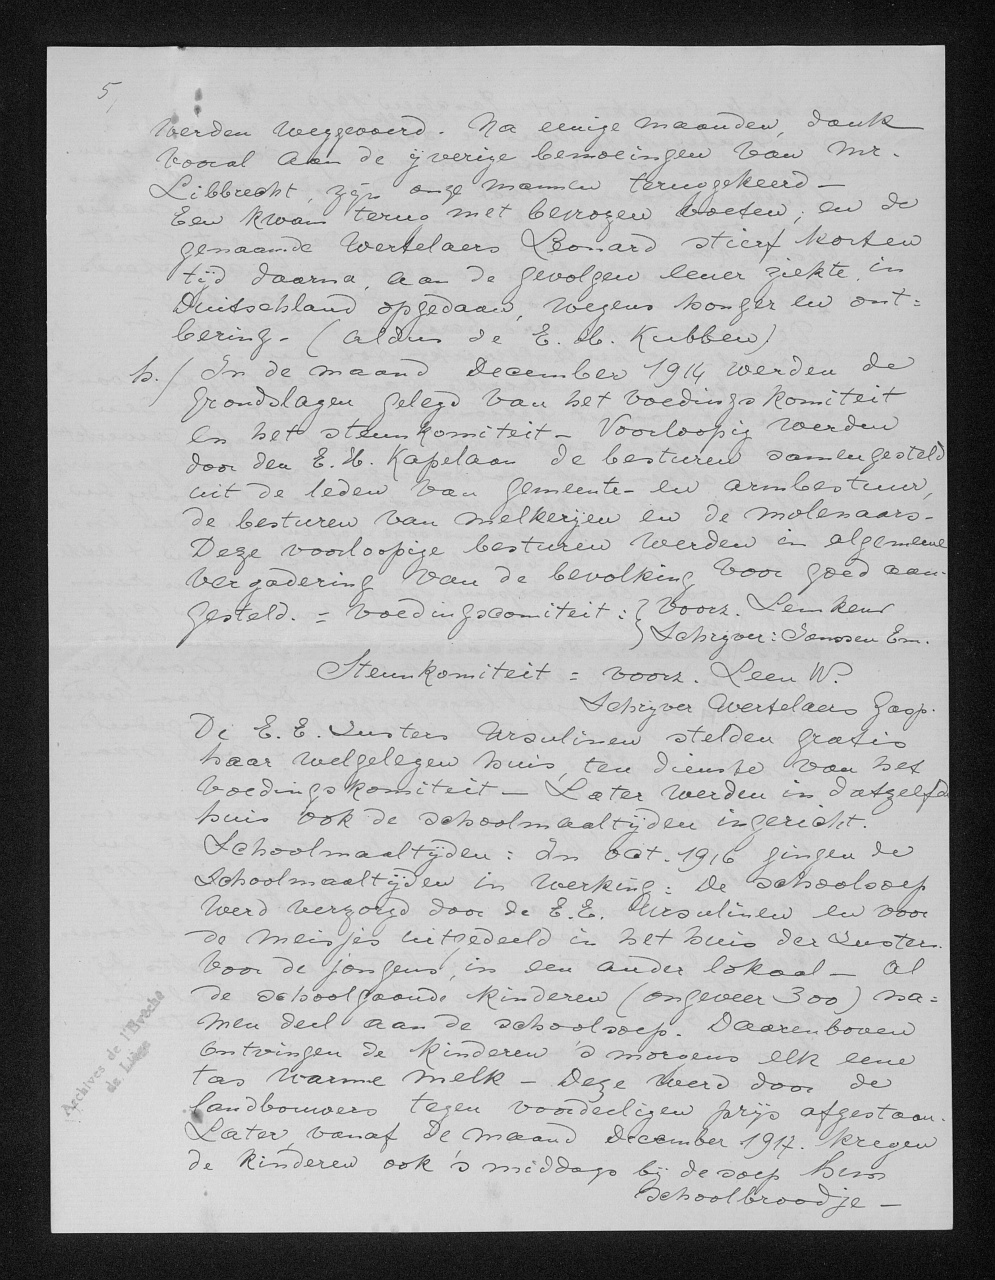 5/
werden weggevoerd. Na eenige maanden, dank
vooral aan de ijverige bemoeingen van Mr.
Libbrecht, zijn onze mannen teruggekeerd –
Een kwam terug met bevrozen voeten; en de
genaamde Wertelaers Leonard stierf korten
tijd daarna, aan de gevolgen eener ziekte, in
Duitschland opgedaan, wegens honger en ont=
bering. (aldus de E. H. Kubben)
h./ In de maand December 1914 werden de
grondslagen gelegd van het voedingskomiteit
en het steunkomiteit – Voorloopig werden
door den E. H. Kapelaan de besturen samengesteld
uit de leden van gemeente- en armbestuur,
de besturen van melkerijen en de molenaars.
Deze voorloopige besturen werden in algemeene
vergadering van de bevolking voor goed aan-
gesteld. = voedingscomiteit: { Voorz. Lemkens
Schrijver: Janssen Em.
Steunkomiteit = voorz. Leen W.
Schrijver Wertelaers Gasp.
De E. E. Zusters Ursulinen stelden gratis
haar welgelegen huis, ten dienste van het
voedingskomiteit – Later werden in datzelfde
huis ook de schoolmaaltijden ingericht.
Schoolmaaltijden: In oct. 1916 gingen de
Schoolmaaltijden in werking: De schoolsoep
werd verzorgd door de E. E. Ursulinen en voor
de meisjes uitgedeeld in het huis der Zusters.
Voor de jongens, in een ander lokaal – Al
de schoolgaande kinderen (ongeveer 300) na=
men deel aan de schoolsoep. Daarenboven
ontvingen de kinderen 's morgens elk eene
tas warme melk – Deze werd door de
landbouwers tegen voordeeligen prijs afgestaan.
Later, vanaf de maand December 1917. kregen
de kinderen ook 's middags bij de soep hun
Schoolbroodje –
Archives de l'Evêché
de Liège